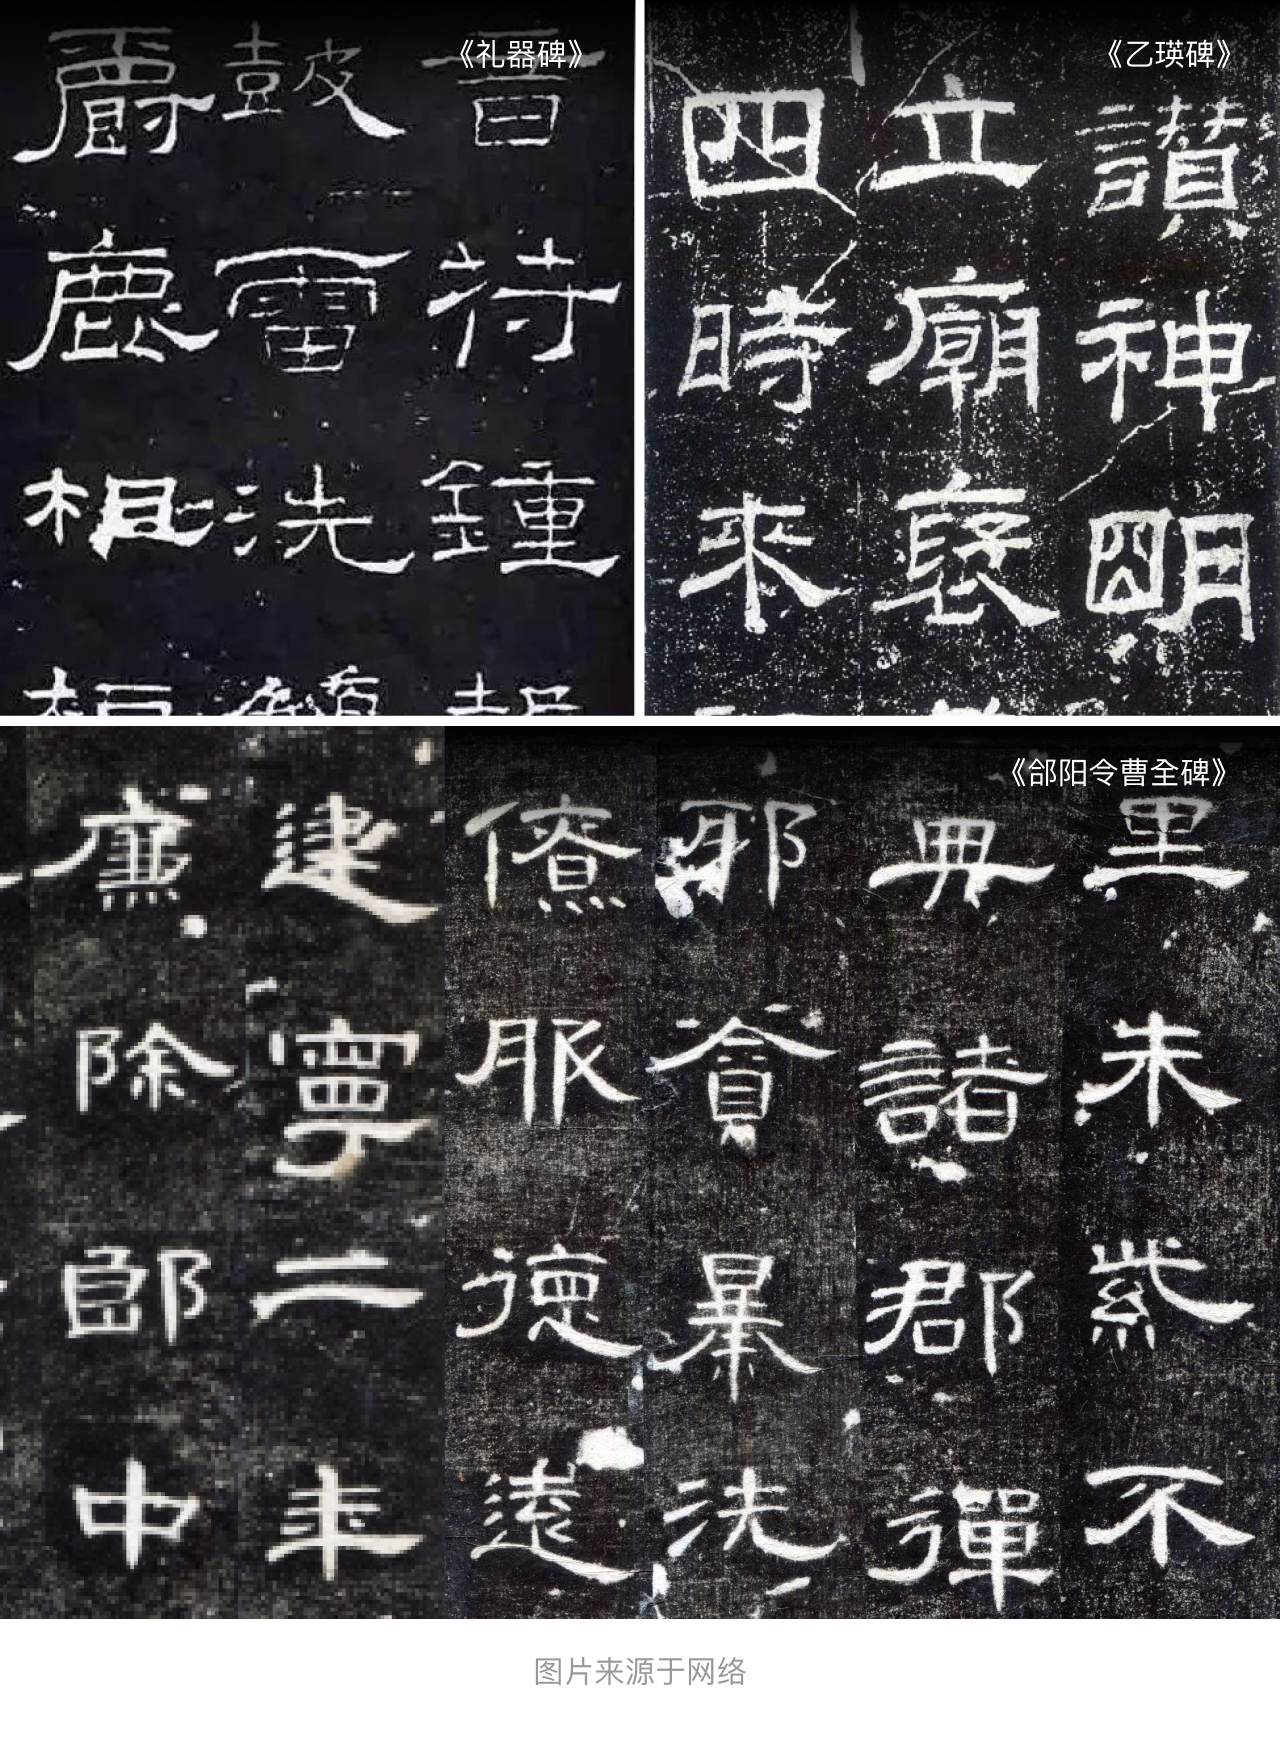 《礼器碑》
音符鍾磬
鼓雷洗觴
爵鹿柤梪
《乙瑛碑》
讚神明
立廟褒
四時來
《郃阳令曹全碑》
里未紫不
典諸郡彈
邪貪暴洗
僚服德遠
建寧二年
廉除郎中
图片来源于网络